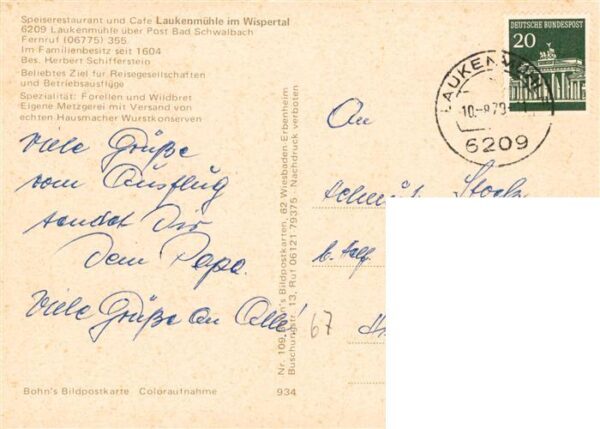 Speiserestaurant und Cafe Laukenmühle im Wispertal
6209 Laukenmühle über Post Bad Schwalbach
Fernruf (06775) 355
Im Familienbesitz seit 1604
Bes. Herbert Schifferstein
Beliebtes Ziel für Reisegesellschaften
und Betriebsausflüge
Spezialität: Forellen und Wildbret
Eigene Metzgerei mit Versand von
echten Hausmacher Wurstkonserven
Viele Grüße
vom Ausflug
sendet Dir
Dein Papa.
Viele Grüße an Alle!
Bohn's Bildpostkarte Coloraufnahme 934
Nr. 109 Bohn's Bildpostkarten, 62 Wiesbaden Erbenheim
Buschungstr. 13, Ruf 06121 79375 - Nachdruck verboten
DEUTSCHE BUNDESPOST
20
6209
An
67